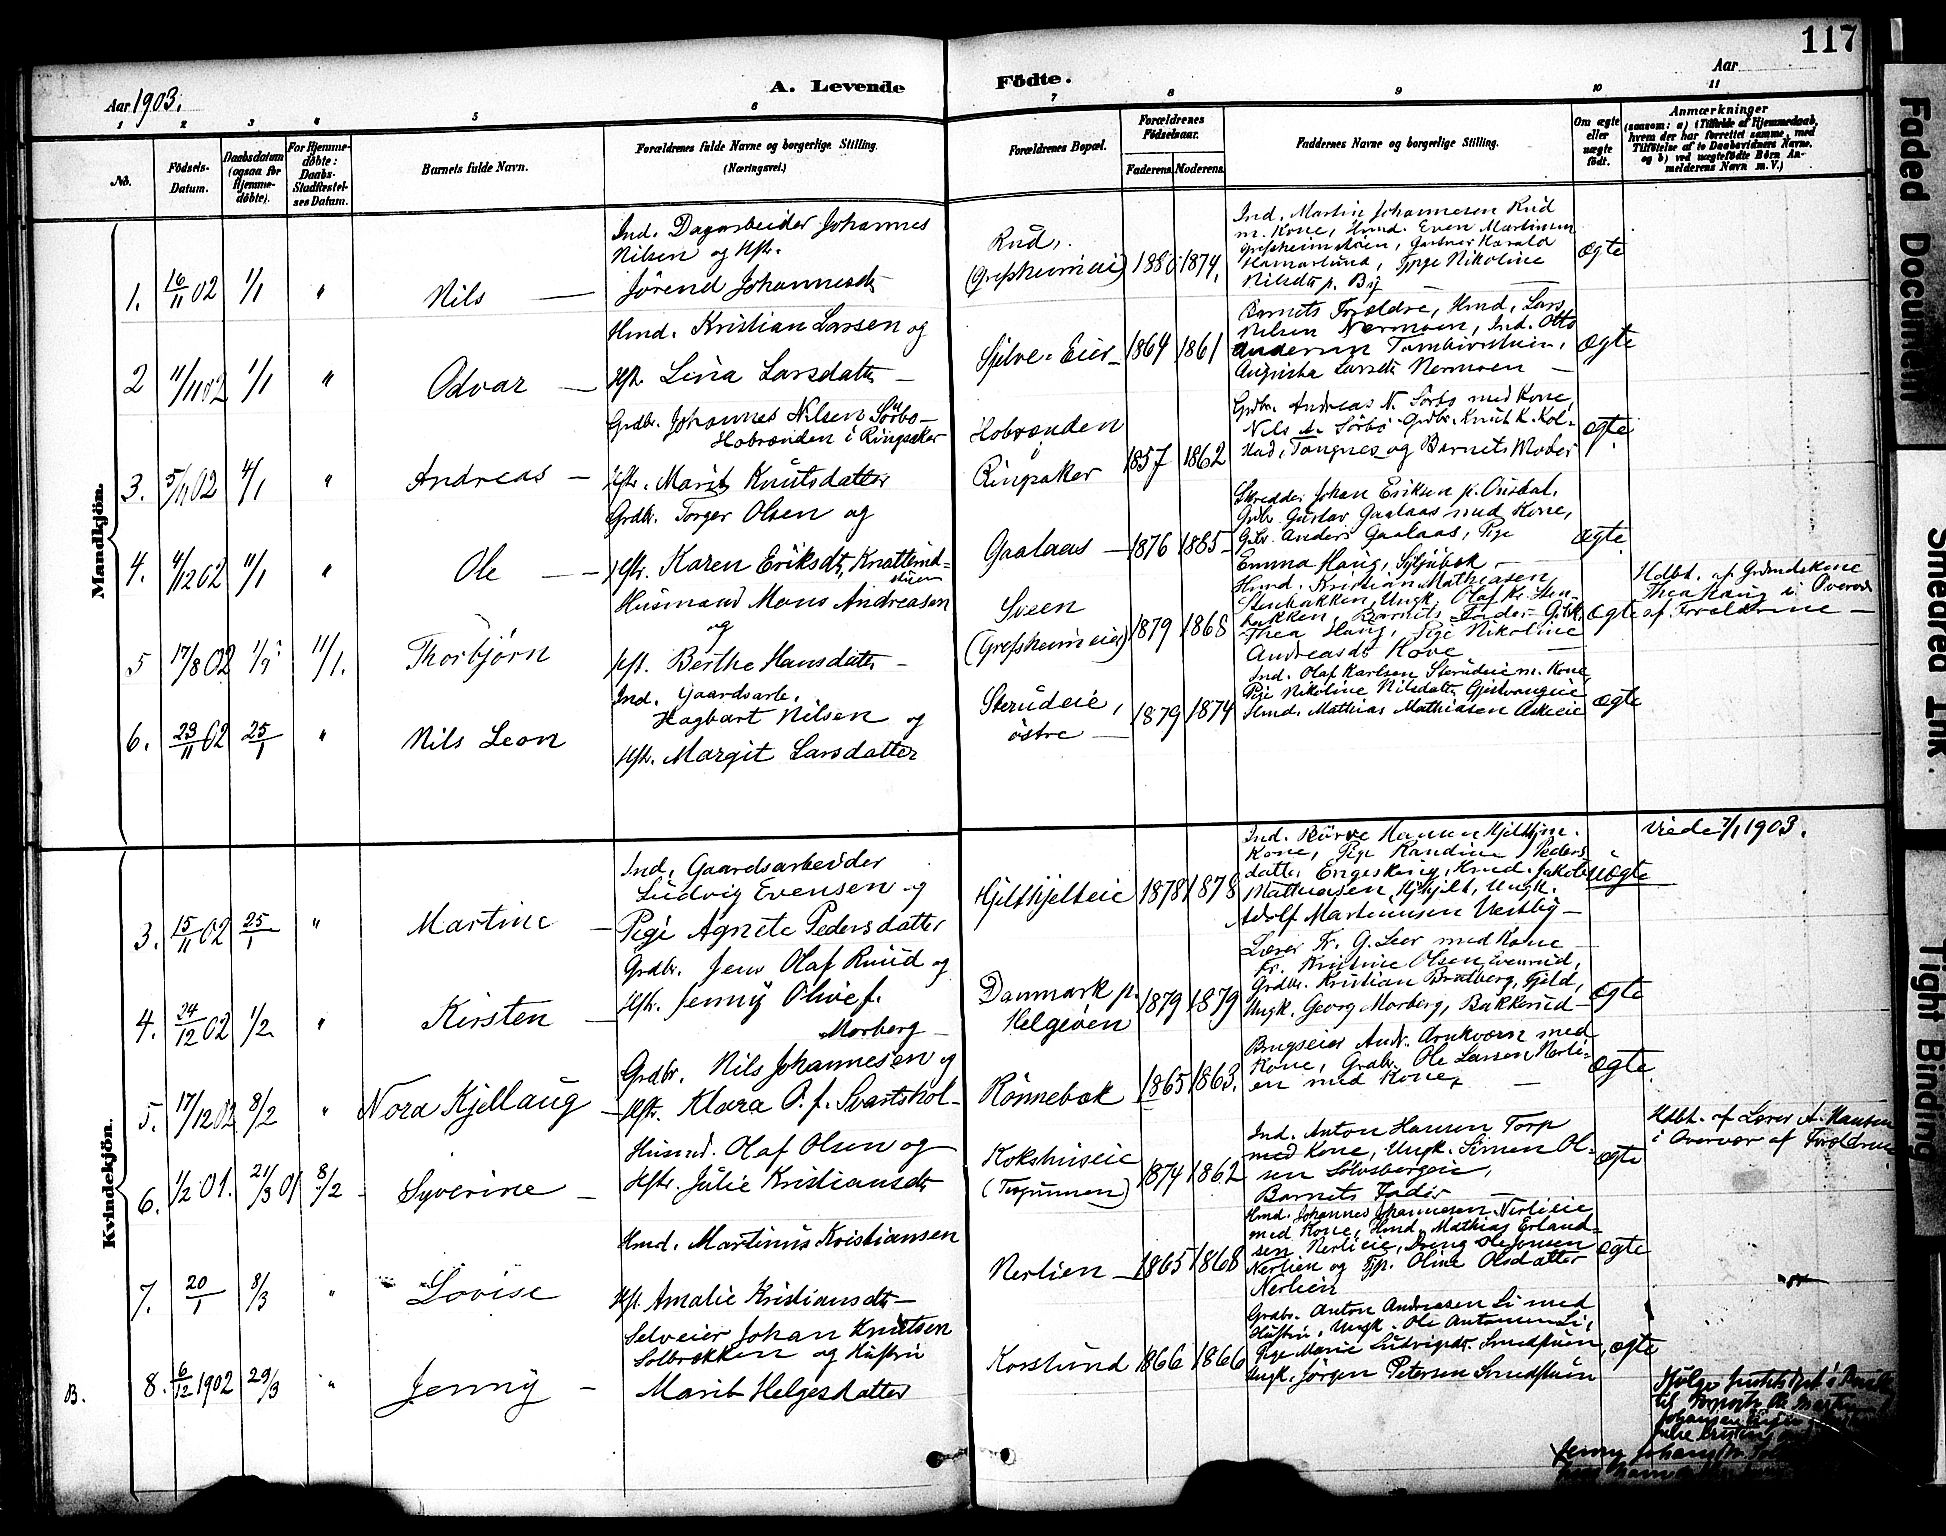 117
Aar 1903.
A. Levende Födte.
Aar
1 2 3 4 5 6 7 8 9 10 11
No.
Födsels-Datum.
Daabsdatum (ogsaa for Hjemmedøbte).
For Hjemmedøbte: Daabs-Stadfæstelses Datum.
Barnets fulde Navn.
Forældrenes fulde Navne og borgerlige Stilling. (Næringsvei.)
Forældrenes Bopæl.
Forældrenes Fødselsaar.
Faderens Moderens
Faddernes Navne og borgerlige Stilling.
Om ægte eller uægte født.
Anmærkninger
(saasom: a) i Tilfælde af Hjemmedaab, hvem der har forrettet samme, med Tilføielse af to Daabsvidners Navne, og b) ved uægtefødte Börn Anmelderens Navn m. V.)
Mandkjön.
1. 16/11 02 1/1 " Nils —
Ind. Dagarbeider Johannes
Nilsen og Hstr.
Jørend Johannesdtr
Rud,
(Grefsheimeie)
1874.
Ind. Martin Johannesen Rud
m. Kone, Hmd. Even Martinsen
Grefsheimstuen, Gartner Harald
Hamarlund, Pige Nikoline
Nilsdtr p. By
ægte
2 11/11 02 1/1 " Odvar —
Hmd. Kristian Larsen og
Hstr. Lina Larsdatter —
1864 1861
Barnets Forældre, Hmd. Lars
Nilsen Nermoen, Ind. Otto
Andersen
Augusta Larsdtr Nermoen —
ægte
3. 5/11 02 4/1 " Andreas —
Grdbr. Johannes Nilsen Sörbo —
Hobrænden i Ringsaker
Hstr. Marit Knutsdatter
Hobrænden
i
Ringsaker
1857 1862
Grdbr. Andreas N. Sörbo med Kone,
Nils A. Sörbo Grdbr. Knut K. Kol-
stad, Tangnes og Barnets Moder
ægte
4. 4/12 02 11/1 " Ole —
Grdbr. Torger Olsen og
Hstr. Karen Eriksdtr.
Gaalaas —
1876 1885
Skredder Johan Eriksen p.
Grdbr. Gustav Gaalaas med Kone,
Grdbr. Anders Gaalaas, Pige
Emma Haug,
ægte
5 17/8 02 11/1. Thorbjørn
Husmand Mons Andreasen
og
Hst. Berthe Hansdatter —
Sveen
(Grefsheimeie)
1879 1868
Hmd. Kristian Mathiasen
Stenbakken, Ungk. Olaf Kr. Sten-
bakken, Barnets Fader,
Thea Haug, Pige Nikoline
Andreasdtr Hove —
ægte
Hdbt. af Grdmandskone
Thea Haug i Overvær
af Forældrene —
6. 23/11 02 25/1 " Nils Leon
Ind. Gaardsarb.
Hagbart Nilsen og
Hstr. Margit Larsdatter
Sterudeie,
östre —
1879 1874
Ind. Olaf Karlsen Sterudeie m. Kone
Pige Nikoline Nilsdatter
Hmd. Mathias Mathiasen
ægte
Kvindekjön.
3. 15/11 02 25/1 " Martine —
Ind. Gaardsarbeider
Ludvig Evensen og
Pige Agnete Pedersdatter
Hjelthjelteie
1878 1878
Ind. Börre Hansen Hjelthj. m.
Kone, Pige Randine Peders
datter, Hmd. Jakob
Mathiasen Hjhjelt, Ungk.
Adolf Martiniusen Vestby —
uægte
Viede 7/1 1903.
4. 24/12 02 1/2 " Kirsten —
Grdbr. Jens Olaf Ruud og
Hstr. Jenny Olive f.
Morberg —
Danmark p.
Helgeöen
1879 1879
Lærer Fr. G. Seer med Kone
Fr. Kristine Olsen
Grdbr. Kristian Bratberg, Fjeld,
Ungk. Georg Morberg, Bakkerud —
ægte
5. 17/12 02 8/2 " Nora Kjellaug —
Grdbr. Nils Johannesen og
Hstr. Klara P. f. Svartshol-
Rönnebæk
1865 1863.
Brugseier Andr. med
Kone, Grdbr. Ole Larsen Nerli-
en med Kone,
ægte.
6. 1/2 01. 21/3 01 8/2 Syverine —
Husmd. Olaf Olsen og
Hstr. Julie Kristiansdtr
Kokshuseie
1874 1862
Ind. Anton Hansen Torp
med Kone, Ungk. Simen Ol-
sen
Barnets Fader —
ægte
Hdbt. af Lærer A. Hansen
i Overvær af Forældrene
7. 20/1 8/3 " Lovise
Hmd. Martinus Kristiansen
Hst. Amalie Kristiansdtr —
Nerlien —
1865 1868
Hmd. Johannes Johannesen Nerlieie
med Kone, Hmd. Mathias Erland-
sen Nerlieie, Dreng Ole Jensen
Nerlien og Pige Oline Olsdatter
Nerlien
ægte
B. 8. 6/12 1902 29/3 " Jenny —
Selveier Johan Knutsen
Solbrekken og Hustru
Marit Helgesdatter
Korslund
1866 1866
Grdbr. Anton Andreasen Li med
Hustru, Ungk. Ole Antonsen Li,
Pige Marie Ludvigsdtr. Smedstuen,
Ungk. Jörgen Petersen Smedstuen
ægte
Faded Document
Smeared Ink.
Tight Binding